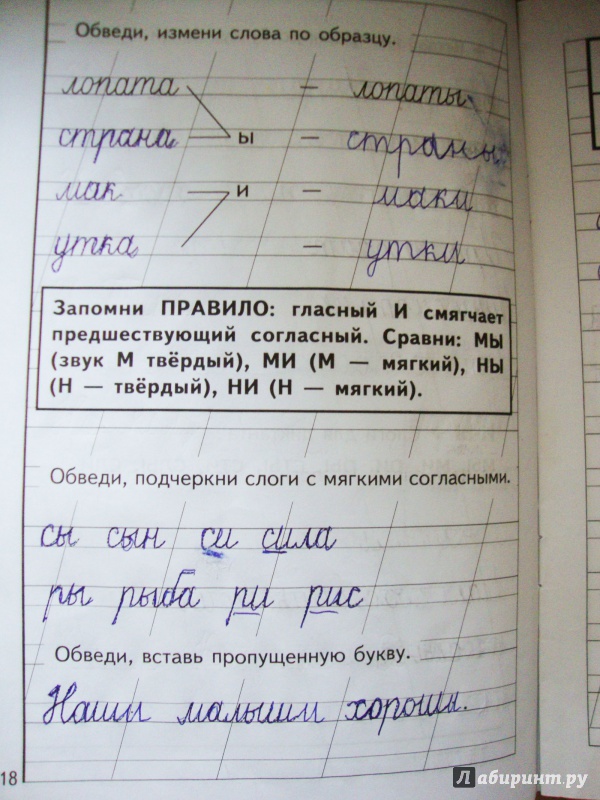 Обведи, измени слова по образцу.
лопата – лопаты
страна ы – страны
мак и – маки
утка – утки
Запомни ПРАВИЛО: гласный И смягчает
предшествующий согласный. Сравни: МЫ
(звук М твёрдый), МИ (М — мягкий), НЫ
(Н — твёрдый), НИ (Н — мягкий).
Обведи, подчеркни слоги с мягкими согласными.
сы сын си сила
ры рыба ри рис
Обведи, вставь пропущенную букву.
Наши малыши хороши.
18
Лабиринт.ру